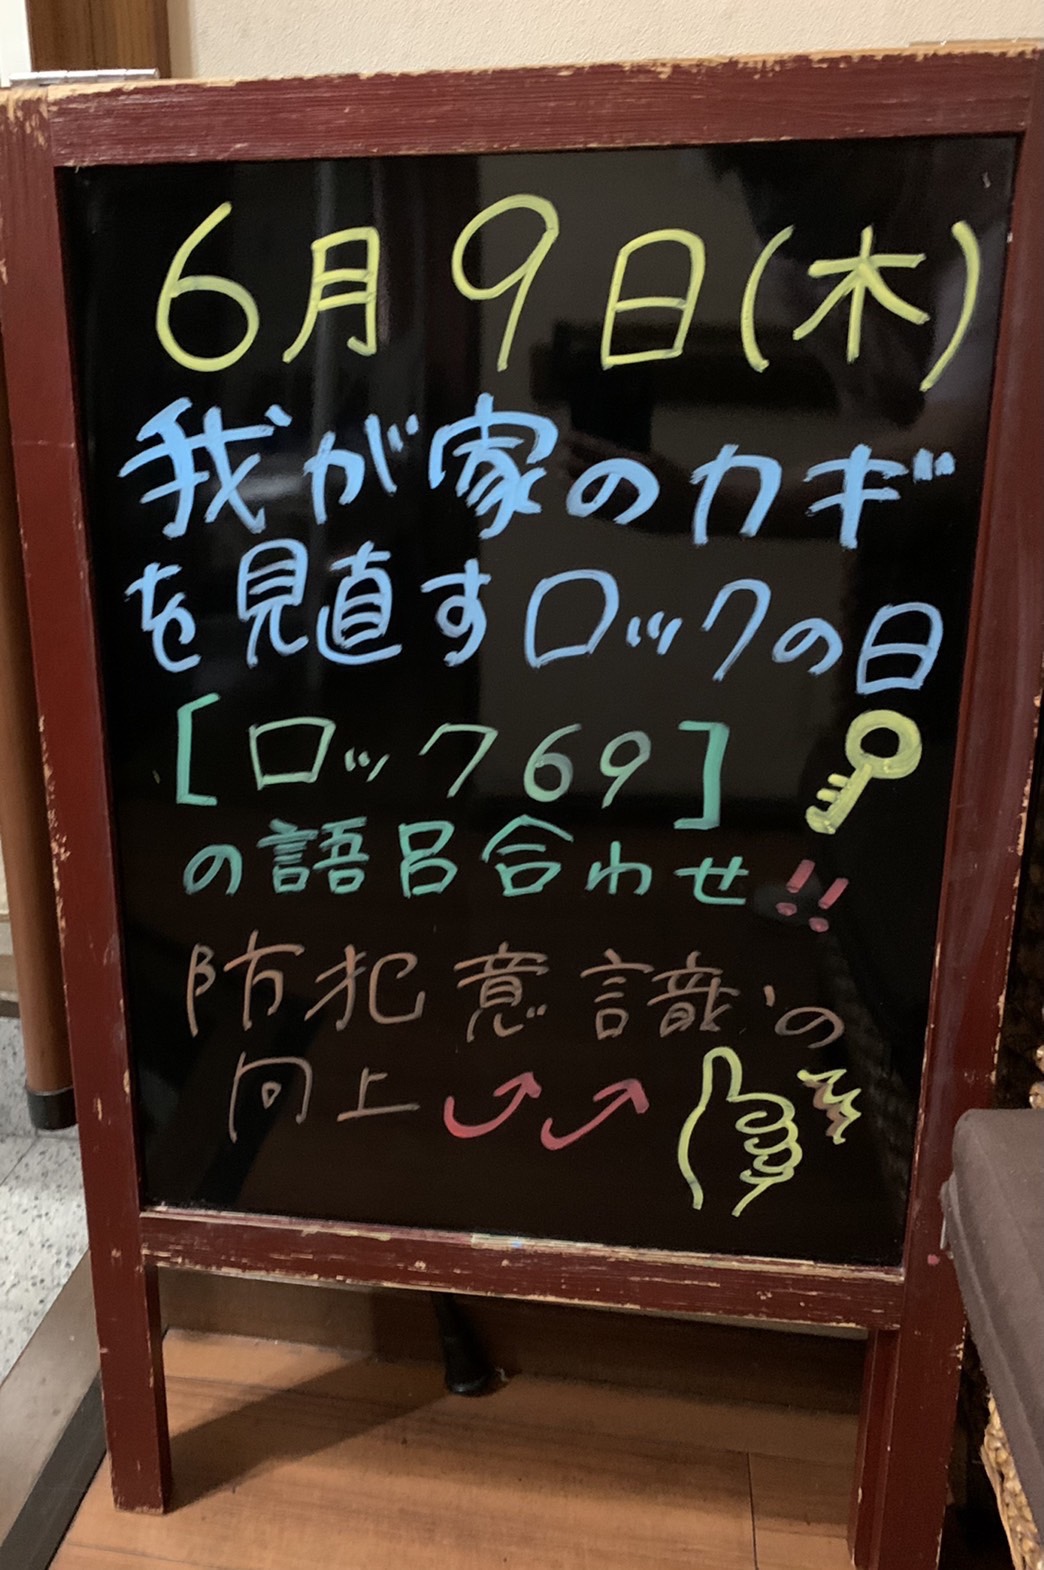 6月9日(木)
我が家のカギ
を見直すロックの日
[ロック69]
の語呂合わせ!!
防犯意識の
向上